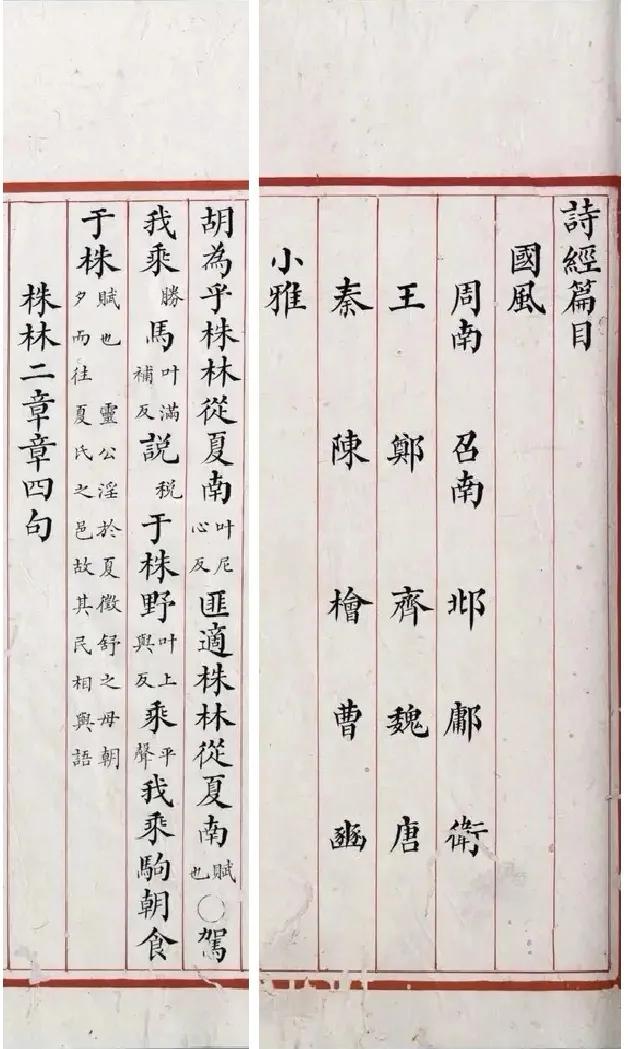 詩經篇目
國風
周南 召南 邶 鄘 衛
王 鄭 齊 魏 唐
秦 陳 檜 曹 豳
小雅
胡為乎株林從夏南叶尼心反匪適株林從夏南賦也○駕
我乘勝馬叶滿補反說稅于株野叶上與反乘平聲我乘駒朝食
于株賦也 靈公淫於夏徵舒之母朝夕而往夏氏之邑故其民相與語
株林二章章四句